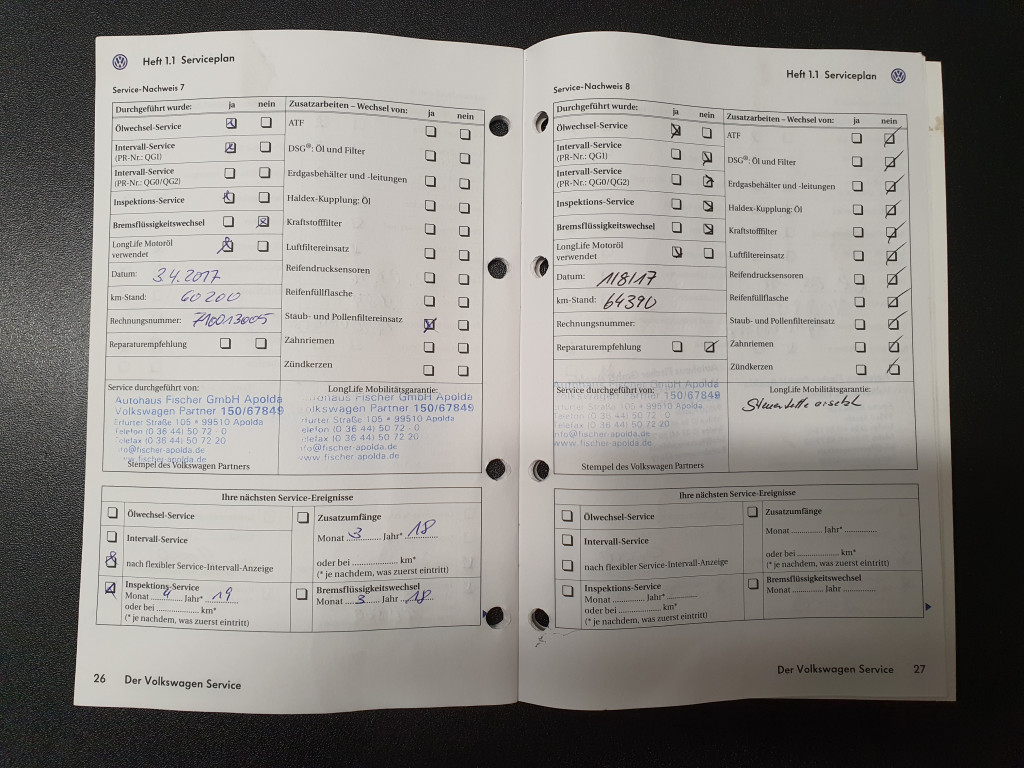 Heft 1.1 Serviceplan
Service-Nachweis 7
Durchgeführt wurde: ja nein
Ölwechsel-Service
Intervall-Service
(PR-Nr.: QG1)
Intervall-Service
(PR-Nr.: QG0/QG2)
Inspektions-Service
Bremsflüssigkeitswechsel
LongLife Motoröl
verwendet
Datum: 3.4.2017
km-Stand: 60200
Rechnungsnummer: 710013005
Reparaturempfehlung
Zusatzarbeiten – Wechsel von: ja nein
ATF
DSG®: Öl und Filter
Erdgasbehälter und -leitungen
Haldex-Kupplung: Öl
Kraftstofffilter
Luftfiltereinsatz
Reifendrucksensoren
Reifenfüllflasche
Staub- und Pollenfiltereinsatz
Zahnriemen
Zündkerzen
Service durchgeführt von:
Autohaus Fischer GmbH Apolda
Volkswagen Partner 150/67849
Erfurter Straße 105 • 99510 Apolda
Telefon (0 36 44) 50 72 - 0
Telefax (0 36 44) 50 72 20
info@fischer-apolda.de
www.fischer-apolda.de
Stempel des Volkswagen Partners
LongLife Mobilitätsgarantie:
Autohaus Fischer GmbH Apolda
Volkswagen Partner 150/67849
Erfurter Straße 105 • 99510 Apolda
Telefon (0 36 44) 50 72 - 0
Telefax (0 36 44) 50 72 20
info@fischer-apolda.de
www.fischer-apolda.de
Ihre nächsten Service-Ereignisse
Ölwechsel-Service
Intervall-Service
nach flexibler Service-Intervall-Anzeige
Inspektions-Service
Monat 4 Jahr* 19
oder bei .................... km*
(* je nachdem, was zuerst eintritt)
Zusatzumfänge
Monat 3 Jahr* 18
oder bei .................... km*
(* je nachdem, was zuerst eintritt)
Bremsflüssigkeitswechsel
Monat 3 Jahr 18
26 Der Volkswagen Service
Heft 1.1 Serviceplan
Service-Nachweis 8
Durchgeführt wurde: ja nein
Ölwechsel-Service
Intervall-Service
(PR-Nr.: QG1)
Intervall-Service
(PR-Nr.: QG0/QG2)
Inspektions-Service
Bremsflüssigkeitswechsel
LongLife Motoröl
verwendet
Datum: 118117
km-Stand: 64390
Rechnungsnummer:
Reparaturempfehlung
Zusatzarbeiten – Wechsel von: ja nein
ATF
DSG®: Öl und Filter
Erdgasbehälter und -leitungen
Haldex-Kupplung: Öl
Kraftstofffilter
Luftfiltereinsatz
Reifendrucksensoren
Reifenfüllflasche
Staub- und Pollenfiltereinsatz
Zahnriemen
Zündkerzen
Service durchgeführt von:
Autohaus Fischer GmbH Apolda
Volkswagen Partner 150/67849
Erfurter Straße 105 • 99510 Apolda
Telefon (0 36 44) 50 72 - 0
Telefax (0 36 44) 50 72 20
info@fischer-apolda.de
www.fischer-apolda.de
Stempel des Volkswagen Partners
LongLife Mobilitätsgarantie:
Steuerkette ersetzt
Ihre nächsten Service-Ereignisse
Ölwechsel-Service
Intervall-Service
nach flexibler Service-Intervall-Anzeige
Inspektions-Service
Monat ............ Jahr* ............
oder bei .................... km*
(* je nachdem, was zuerst eintritt)
Zusatzumfänge
Monat ............ Jahr* ............
oder bei .................... km*
(* je nachdem, was zuerst eintritt)
Bremsflüssigkeitswechsel
Monat ............ Jahr ............
Der Volkswagen Service 27